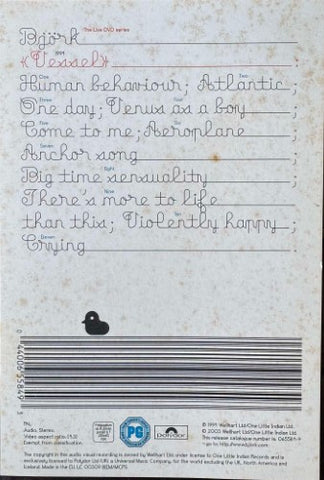 The Live DVD series
Björk
1994
«Vessel» ;
One Two
Human behaviour; Atlantic ;
Three Four
One day; Venus as a boy ;
Five Six
Come to me; Aeroplane ;
Seven
Anchor song ;
Eight
Big time sensuality ;
Nine
There's more to life
Ten
than this; Violently happy ;
Eleven
Crying ;
PAL
Audio: Stereo.
Video aspect ratio:
Exempt from classification.
PG
polydor
℗ 1994 Wellhart Ltd/One Little Indian Ltd.
© 2003 Wellhart Ltd/One Little Indian Ltd.
This release catalogue number is
The copyright in this audio visual recording is owned by Wellhart Ltd under license to One Little Indian Records and is
exclusively licensed to Polydor Ltd (UK) a Universal Music Company, for the world excluding the UK, North America and
Iceland. Made in the